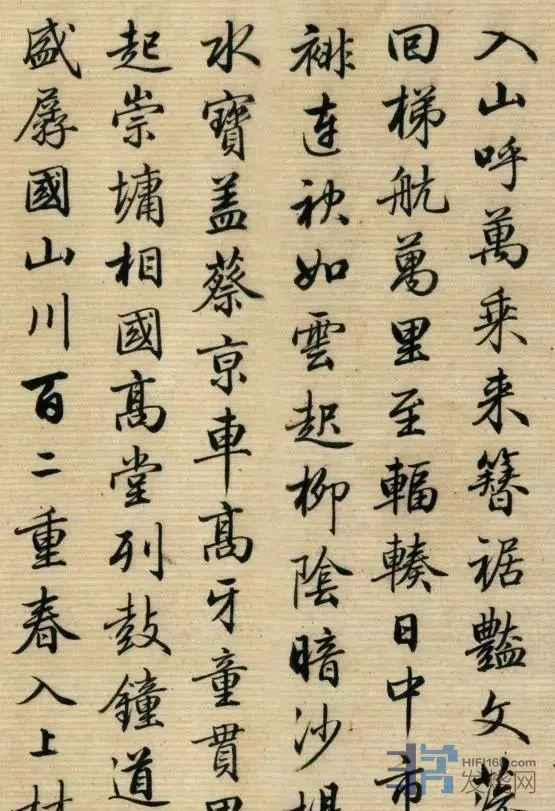 入山呼萬乗来簪裾豔文
回梯航萬里至輻輳日中市
裶連袂如雲起柳陰暗沙堤
水寶盖蔡京車高牙童貫
起崇墉相國高堂列鼓鐘道
盛孱國山川百二重春入上林
HIFI168.com
发烧网